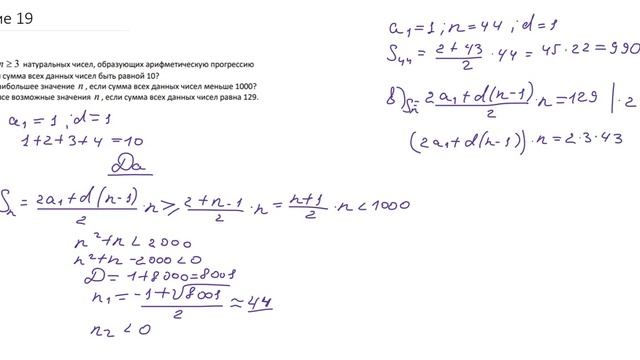 ие 19
n ≥ 3 натуральных чисел, образующих арифметическую прогрессию
и сумма всех данных чисел быть равной 10?
аибольшее значение n , если сумма всех данных чисел меньше 1000?
все возможные значения n , если сумма всех данных чисел равна 129.
a₁ = 1 ; d = 1
1 + 2 + 3 + 4 = 10
Да
Sₙ = (2a₁ + d(n-1))/2 · n ≥ (2 + n - 1)/2 · n = (n+1)/2 · n < 1000
n² + n < 2000
n² + n - 2000 < 0
D = 1 + 8000 = 8001
n₁ = (-1 + √8001)/2 ≈ 44
n₂ < 0
a₁ = 1 ; n = 44 ; d = 1
S₄₄ = (2 + 43)/2 · 44 = 45 · 22 = 990
в) Sₙ = (2a₁ + d(n-1))/2 · n = 129 | · 2
(2a₁ + d(n-1)) · n = 2 · 3 · 43